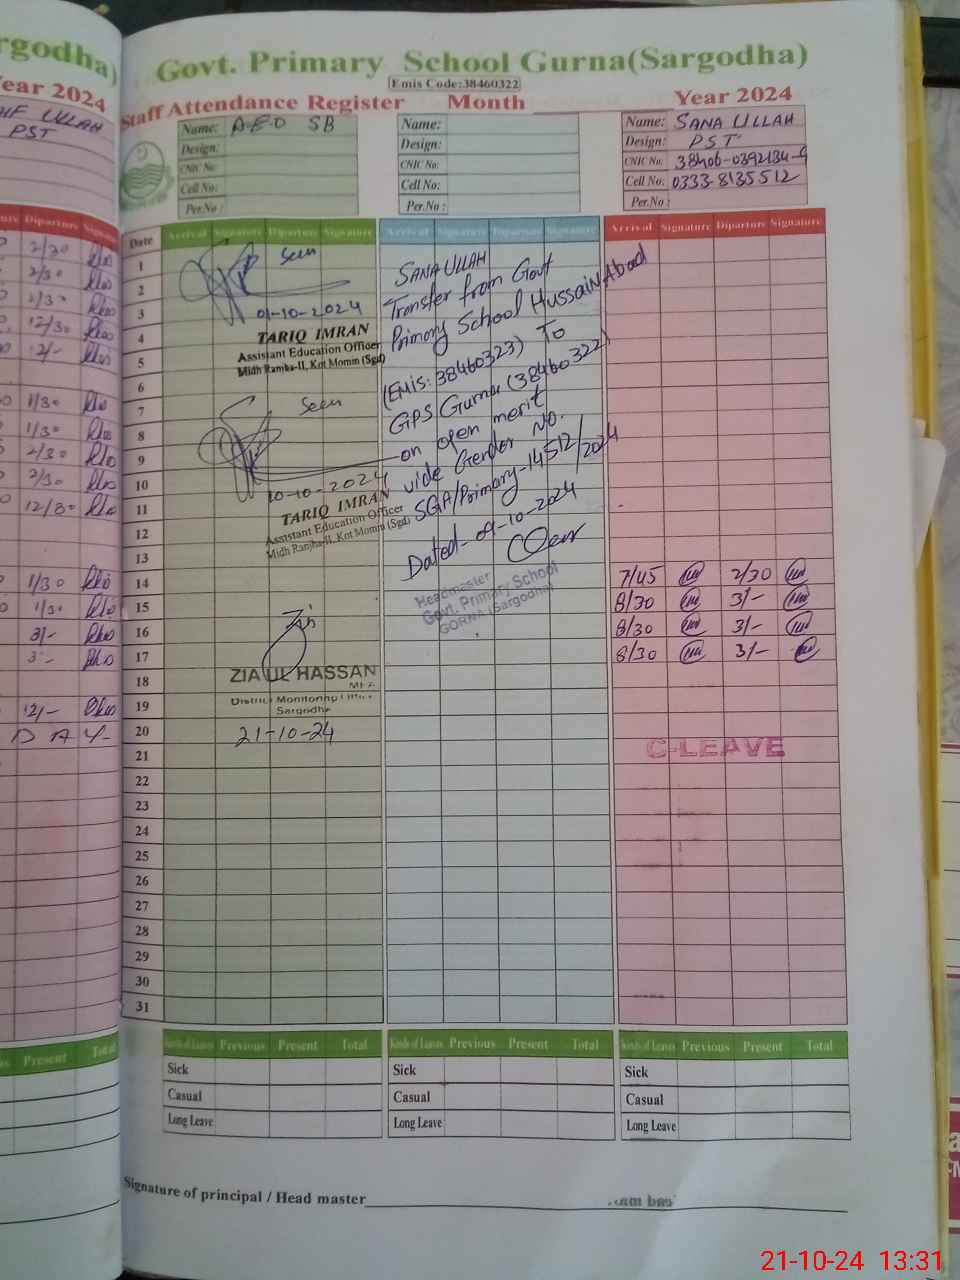 rgodha)
Year 2024
ULLAH
PST
2/30
2/30
2/30
12/30
12/-
1/30
1/30
2/30
2/30
12/30
1/30
1/30
3/-
3-
12/-
D A Y-
Present Total
Govt. Primary School Gurna(Sargodha)
Emis Code:38460322
Staff Attendance Register Month Year 2024
Name: A-E-O SB
Design:
CNIC No:
Cell No:
Per.No :
Name:
Design:
CNIC No:
Cell No:
Per.No :
Name: SANA ULLAH
Design: PST
CNIC No: 38406-0392134-9
Cell No: 0333-8135512
Per.No :
Date Arrival Signature Diparture Signature Arrival Signature Diparture Signature Arrival Signature Diparture Signature
1
2
3
4
5
6
7
8
9
10
11
12
13
14 7/45 2/30
15 8/30 3/-
16 8/30 3/-
17 8/30 3/-
18
19
20
21 C-LEAVE
22
23
24
25
26
27
28
29
30
31
Seen
01-10-2024
TARIQ IMRAN
Assistant Education Officer
Midh Ranjha-II, Kot Momin (Sgd)
Seen
10-10-2024
TARIQ IMRAN
Assistant Education Officer
Midh Ranjha-II, Kot Momin (Sgd)
ZIA UL HASSAN
District Monitoring
Sargodha
21-10-24
SANA ULLAH
Transfer from Govt
Primary School HussainAbad
(Emis: 38460323) To
GPS Gurna (38460322)
on open merit
vide Gender No.
SGA/Primary-14512/2024
Dated- 09-10-2024
Headmaster
Govt. Primary School
GORNA (Sargodha)
Kinds of Leaves Previous Present Total Kinds of Leaves Previous Present Total Kinds of Leaves Previous Present Total
Sick Sick Sick
Casual Casual Casual
Long Leave Long Leave Long Leave
Signature of principal / Head master
21-10-24 13:31